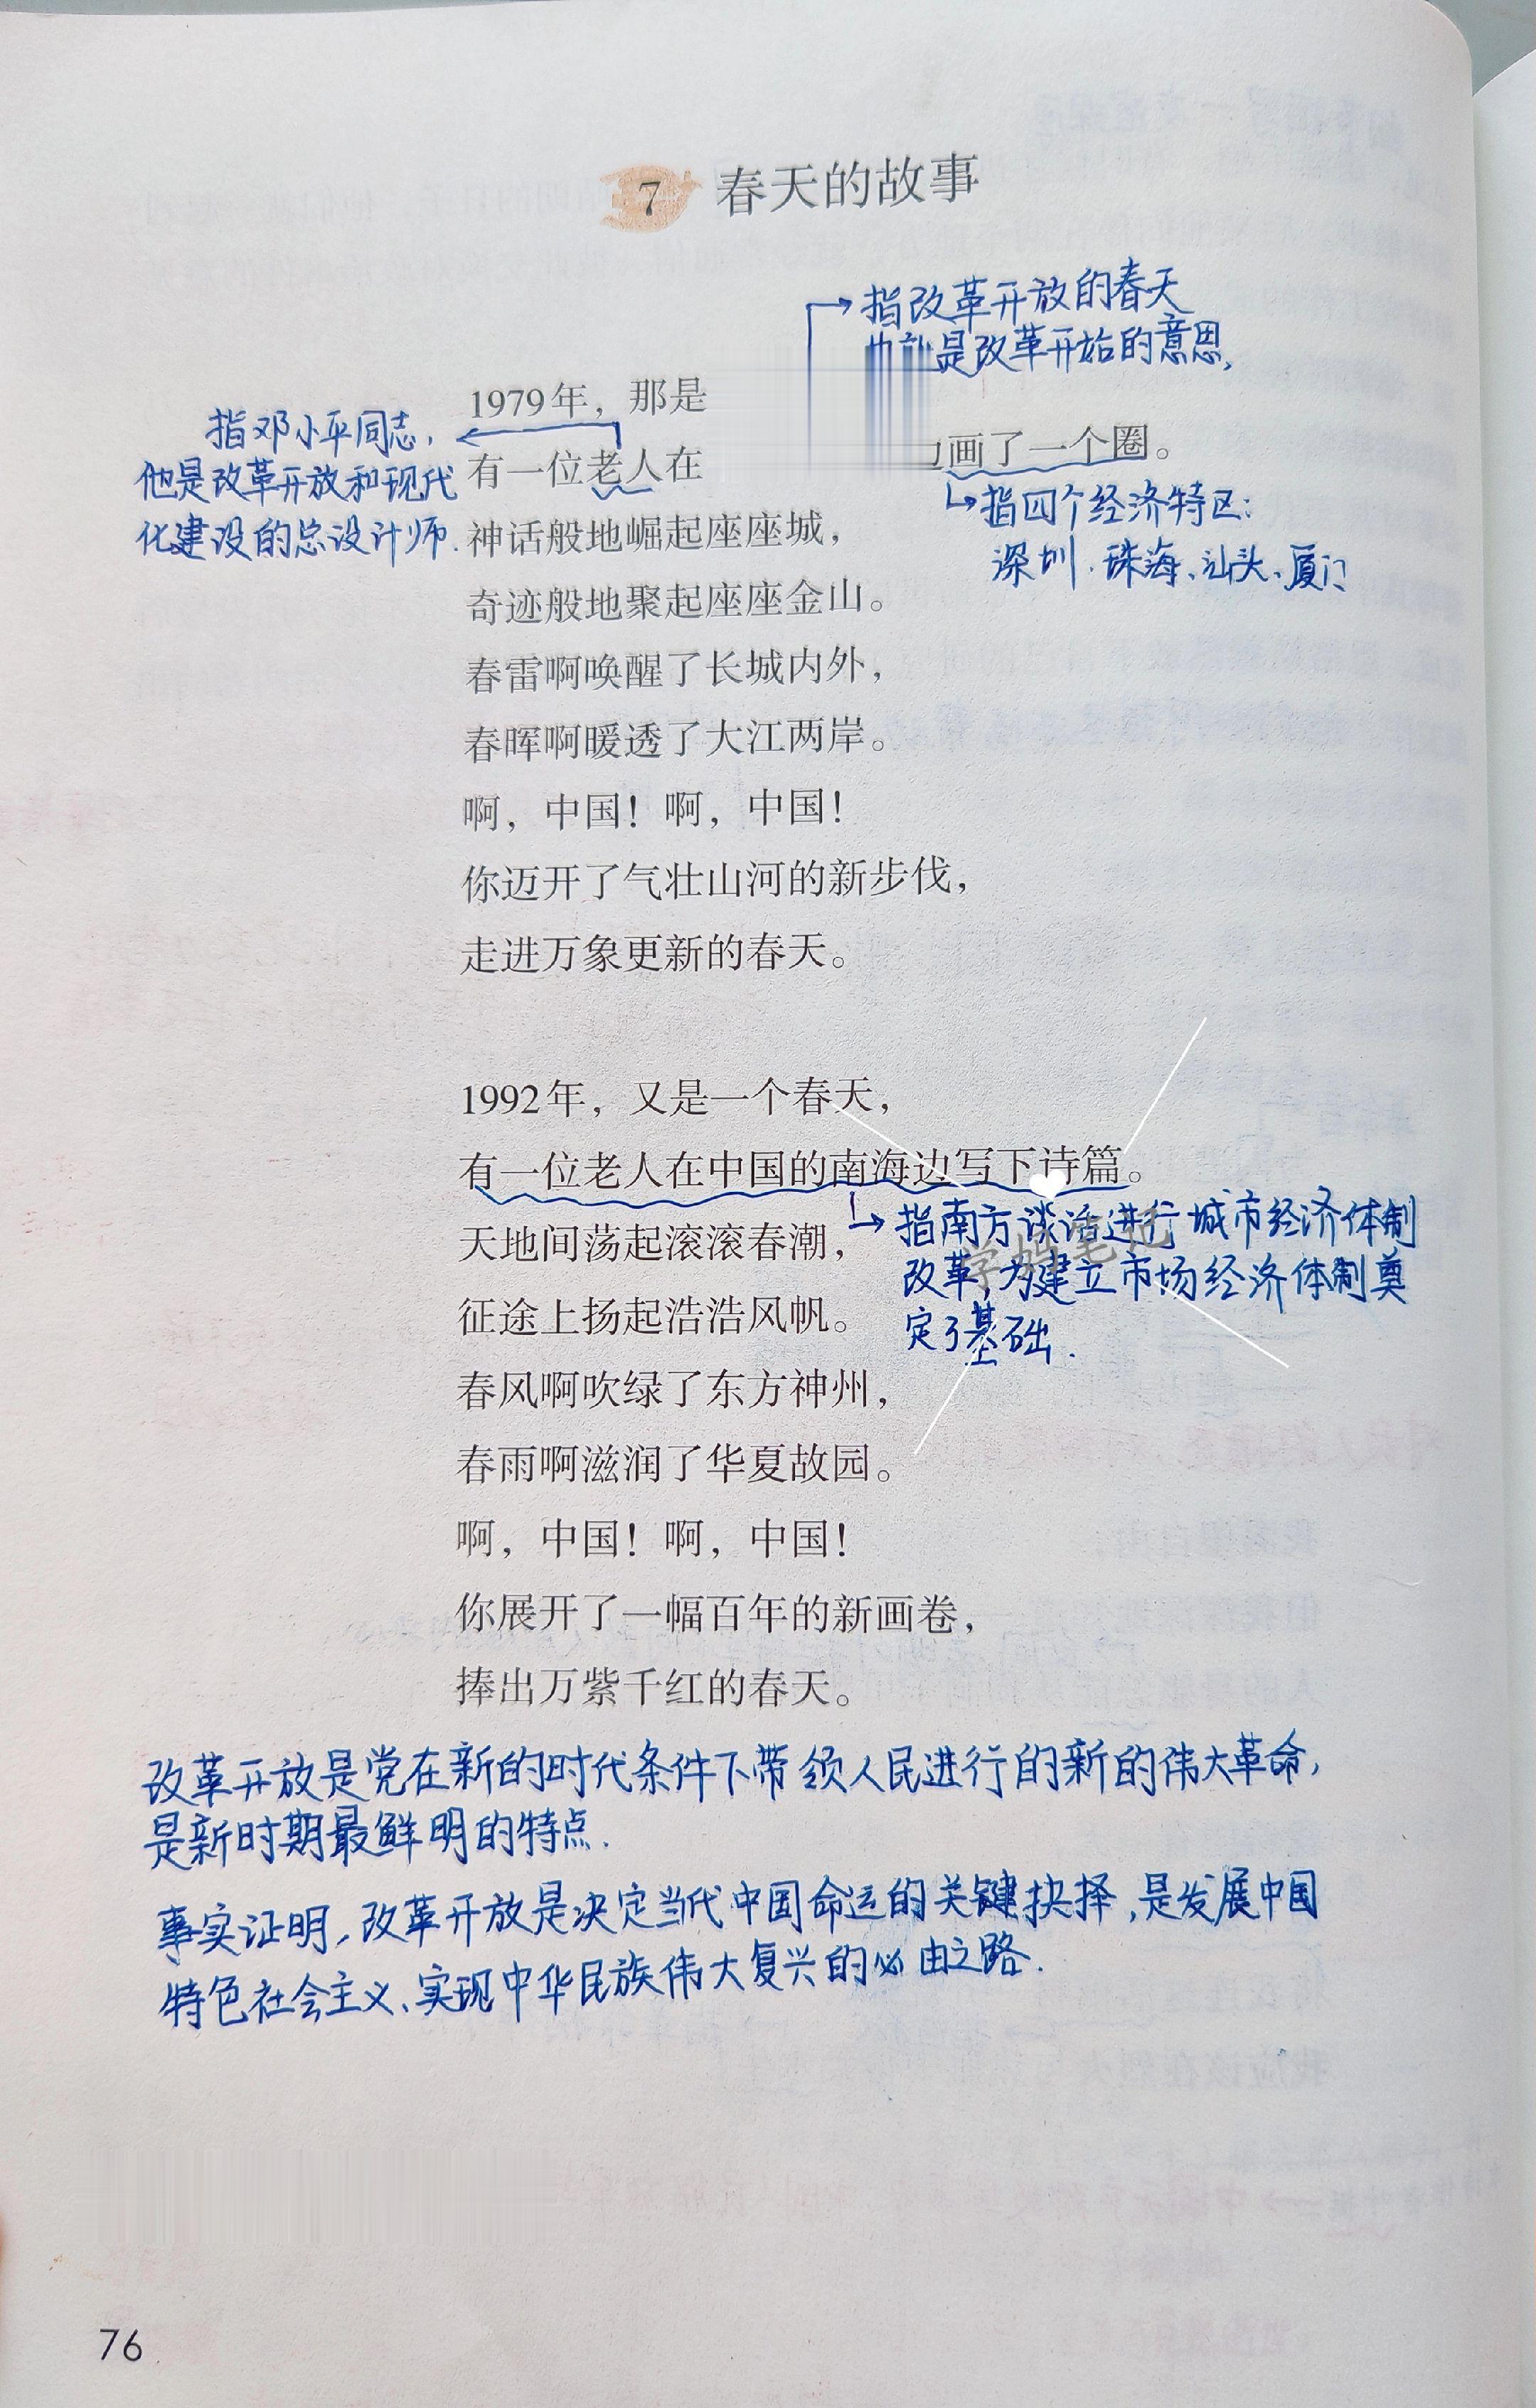 7 春天的故事
指改革开放的春天
是改革开始的意思,
1979年，那是
指邓小平同志，
他是改革开放和现代
化建设的总设计师.
有一位老人在
画了一个圈。
指四个经济特区:
深圳、珠海、汕头、厦门
神话般地崛起座座城，
奇迹般地聚起座座金山。
春雷啊唤醒了长城内外，
春晖啊暖透了大江两岸。
啊，中国！啊，中国！
你迈开了气壮山河的新步伐，
走进万象更新的春天。
1992年，又是一个春天，
有一位老人在中国的南海边写下诗篇。
指南方谈话进行城市经济体制
改革,为建立市场经济体制奠
定了基础.
学妈笔记
天地间荡起滚滚春潮，
征途上扬起浩浩风帆。
春风啊吹绿了东方神州，
春雨啊滋润了华夏故园。
啊，中国！啊，中国！
你展开了一幅百年的新画卷，
捧出万紫千红的春天。
改革开放是党在新的时代条件下带领人民进行的新的伟大革命,
是新时期最鲜明的特点.
事实证明,改革开放是决定当代中国命运的关键抉择,是发展中国
特色社会主义、实现中华民族伟大复兴的必由之路.
76